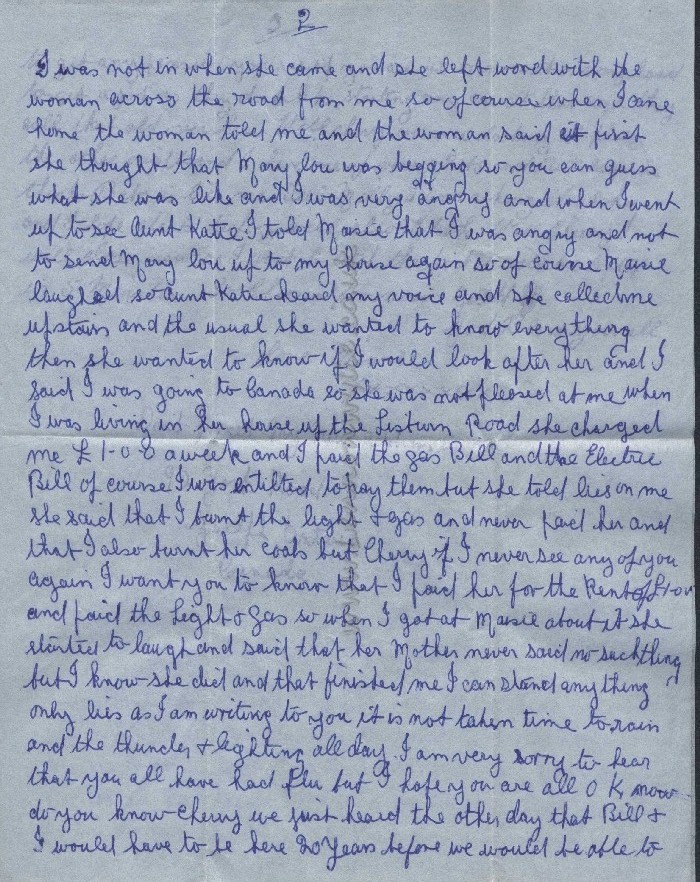 2
I was not in when she came and she left word with the
woman across the road from me so of course when I came
home the woman told me and the woman said at first
she thought that Mary Lou was begging so you can guess
what she was like and I was very angry and when I went
up to see Aunt Katie I told Maisie that I was angry and not
to send Mary Lou up to my house again so of course Maisie
laughed so Aunt Katie heard my voice and she called me
upstairs and the usual she wanted to know everything
then she wanted to know if I would look after her and I
said I was going to Canada so she was not pleased at me when
I was living in her house up the Lisburn Road she charged
me £1-0-0 a week and I paid the gas Bill and the Electric
Bill of course I was entilted to pay them but she told lies on me
she said that I burnt the light + gas and never paid her and
that I also burnt her coals but Cherry if I never see any of you
again I want you to know that I paid her for the Rent of £1-0-0
and paid the Light + gas so when I got at Maisie about it she
started to laugh and said that her Mother never said no such thing
but I know she did and that finished me I can stand anything
only lies as I am writing to you it is not taken time to rain
and the thunder + lighting all day. I am very sorry to hear
that you all have had Flu but I hope you are all O K now
do you know Cherry we just heard the other day that Bill +
I would have to be here 20 years before we would be able to